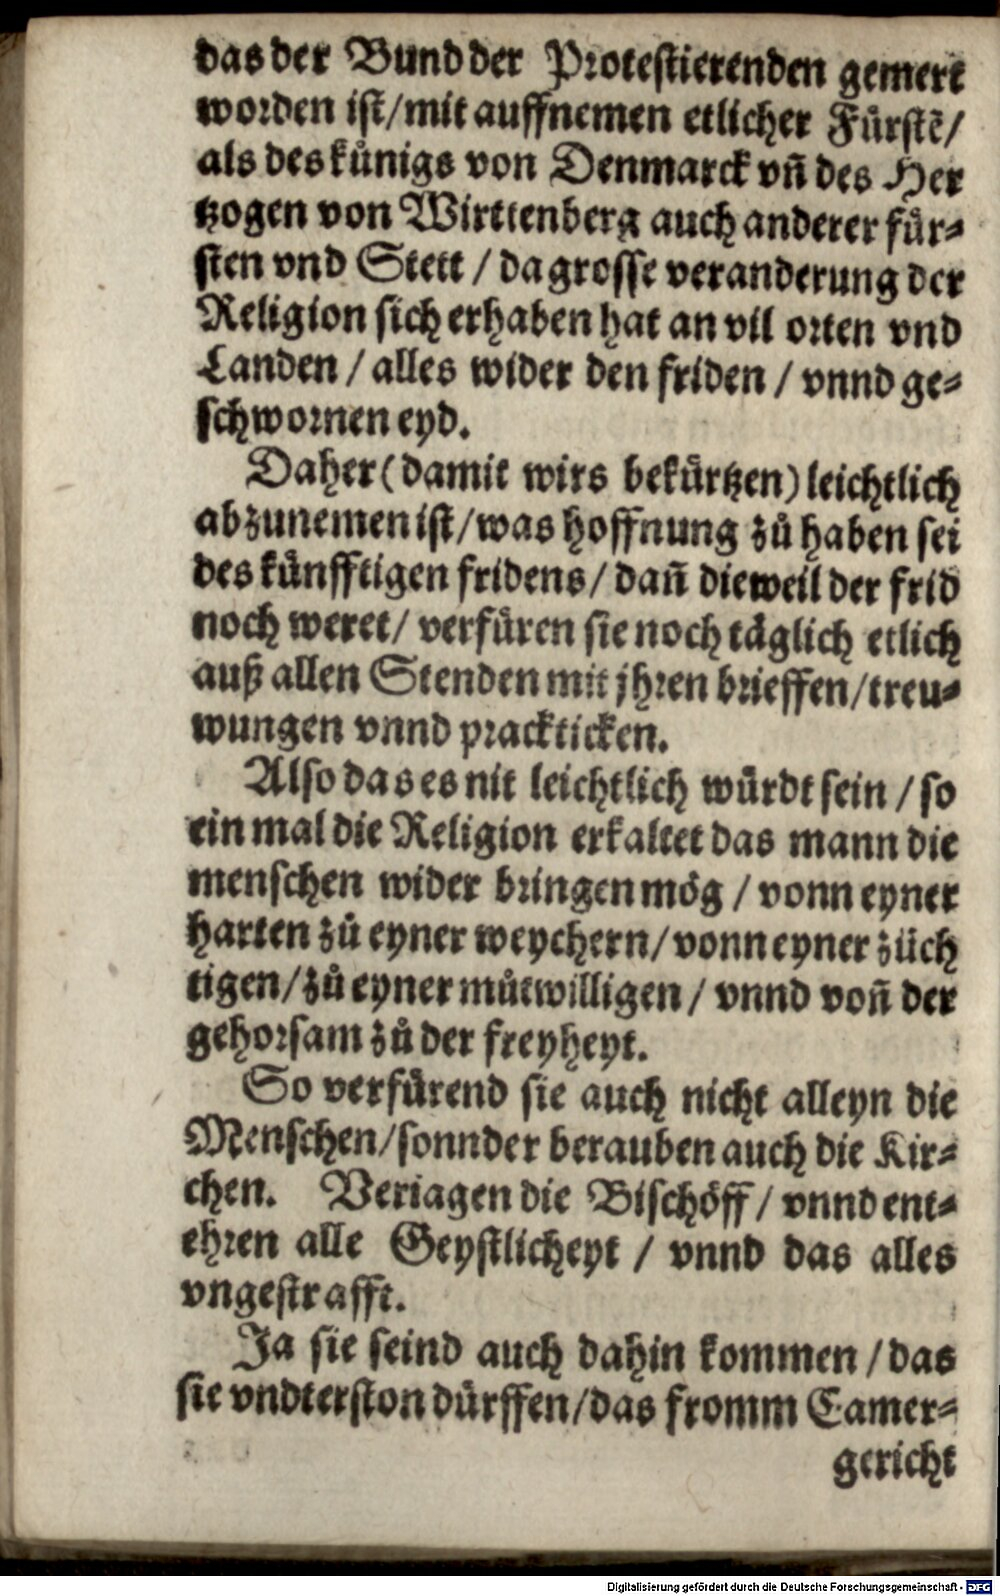 das der Bund der Protestierenden gemert
worden ist/mit auffnemen etlicher Fürstē/
als des künigs von Denmarck vn̄ des Her
tzogen von Wirttenberg auch anderer für⸗
sten vnd Stett / da grosse veranderung der
Religion sich erhaben hat an vil orten vnd
Landen / alles wider den friden / vnnd ge⸗
schwornen eyd.
Daher (damit wirs bekürtzen) leichtlich
abzunemen ist/was hoffnung zů haben sei
des künfftigen fridens/ dan̄ dieweil der frid
noch weret/ verfüren sie noch täglich etlich
auß allen Stenden mit jhren brieffen/treu⸗
wungen vnnd prackticken.
Also das es nit leichtlich würdt sein / so
ein mal die Religion erkaltet das mann die
menschen wider bringen mög / vonn eyner
harten zů eyner weychern/ vonn eyner züch
tigen/ zů eyner můtwilligen / vnnd von̄ der
gehorsam zů der freyheyt.
So verfürend sie auch nicht alleyn die
Menschen/sonnder berauben auch die Kir⸗
chen. Veriagen die Bischöff / vnnd ent⸗
ehren alle Geystlicheyt / vnnd das alles
vngestrafft.
Ja sie seind auch dahin kommen / das
sie vndterston dürffen/das fromm Camer⸗
gericht
Digitalisierung gefördert durch die Deutsche Forschungsgemeinschaft - DFG